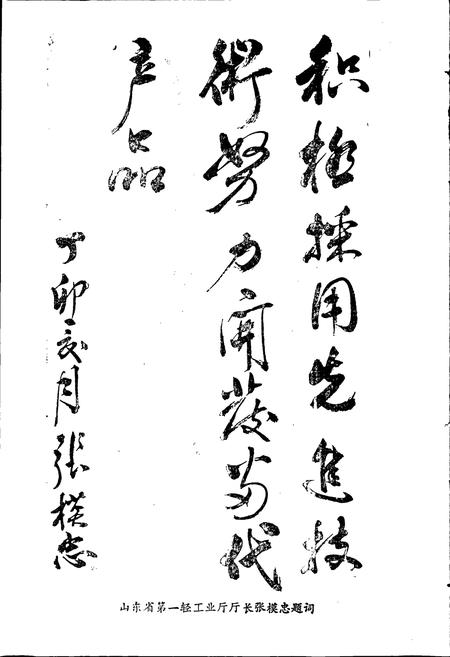 积极採用先進技
術努力开发当代
产品
丁卯亥月張樸忠
山东省第一轻工业厅厅长张樸忠题词